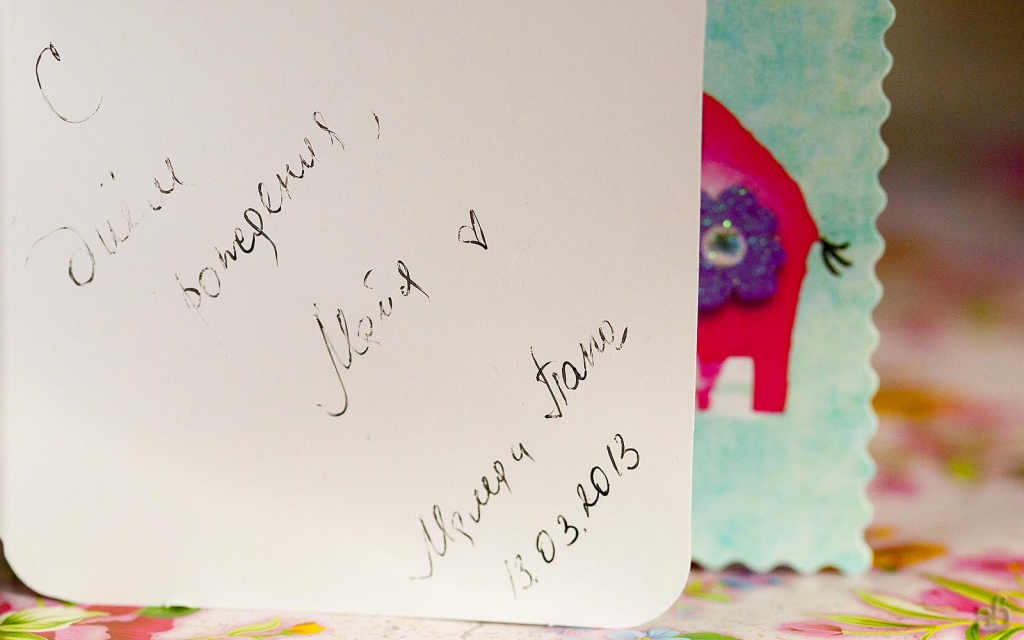 С
Днём
рождения,
Майя ♡
Мама и Папа
13.03.2013